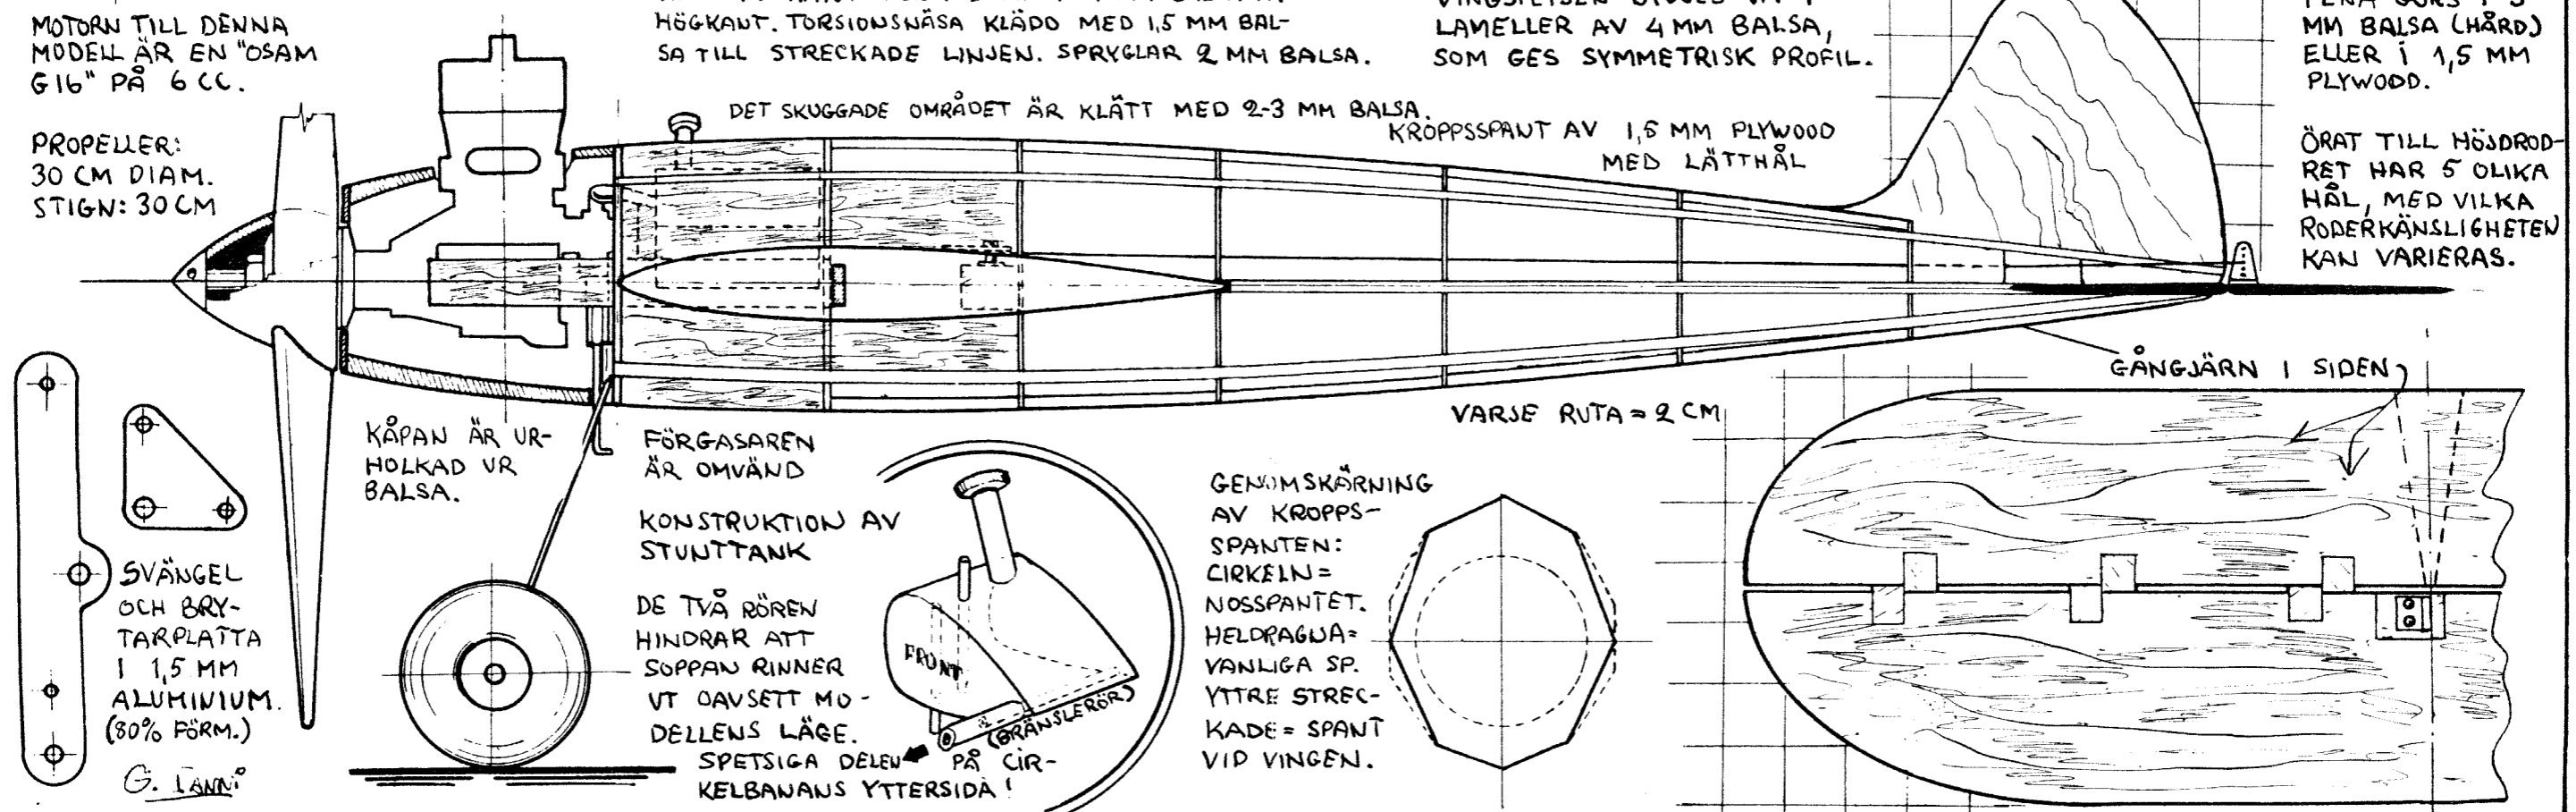 MOTORN TILL DENNA
MODELL ÄR EN "OSAM
G16" PÅ 6 CC.
PROPELLER:
30 CM DIAM.
STIGN: 30 CM
HÖGKANT. TORSIONSNÄSA KLÄDD MED 1,5 MM BAL-
SA TILL STRECKADE LINJEN. SPRYGLAR 2 MM BALSA.
LAMELLER AV 4 MM BALSA,
SOM GES SYMMETRISK PROFIL.
MM BALSA (HÅRD)
ELLER I 1,5 MM
PLYWOOD.
DET SKUGGADE OMRÅDET ÄR KLÄTT MED 2-3 MM BALSA.
KROPPSSPANT AV 1,5 MM PLYWOOD
MED LÄTTHÅL
ÖRAT TILL HÖJDROD-
RET HAR 5 OLIKA
HÅL, MED VILKA
RODERKÄNSLIGHETEN
KAN VARIERAS.
GÅNGJÄRN I SIDEN
VARJE RUTA = 2 CM
KÅPAN ÄR UR-
HOLKAD UR
BALSA.
FÖRGASAREN
ÄR OMVÄND
KONSTRUKTION AV
STUNTTANK
DE TVÅ RÖREN
HINDRAR ATT
SOPPAN RINNER
UT OAVSETT MO-
DELLENS LÄGE.
SPETSIGA DELEN PÅ CIR-
KELBANANS YTTERSIDA!
FRONT
(BRÄNSLERÖR)
GENOMSKÄRNING
AV KROPPS-
SPANTEN:
CIRKELN =
NOSSPANTET.
HELDRAGNA =
VANLIGA SP.
YTTRE STREC-
KADE = SPANT
VID VINGEN.
SVÄNGEL
OCH BRY-
TARPLATTA
I 1,5 MM
ALUMINIUM.
(80% FÖRM.)
G.